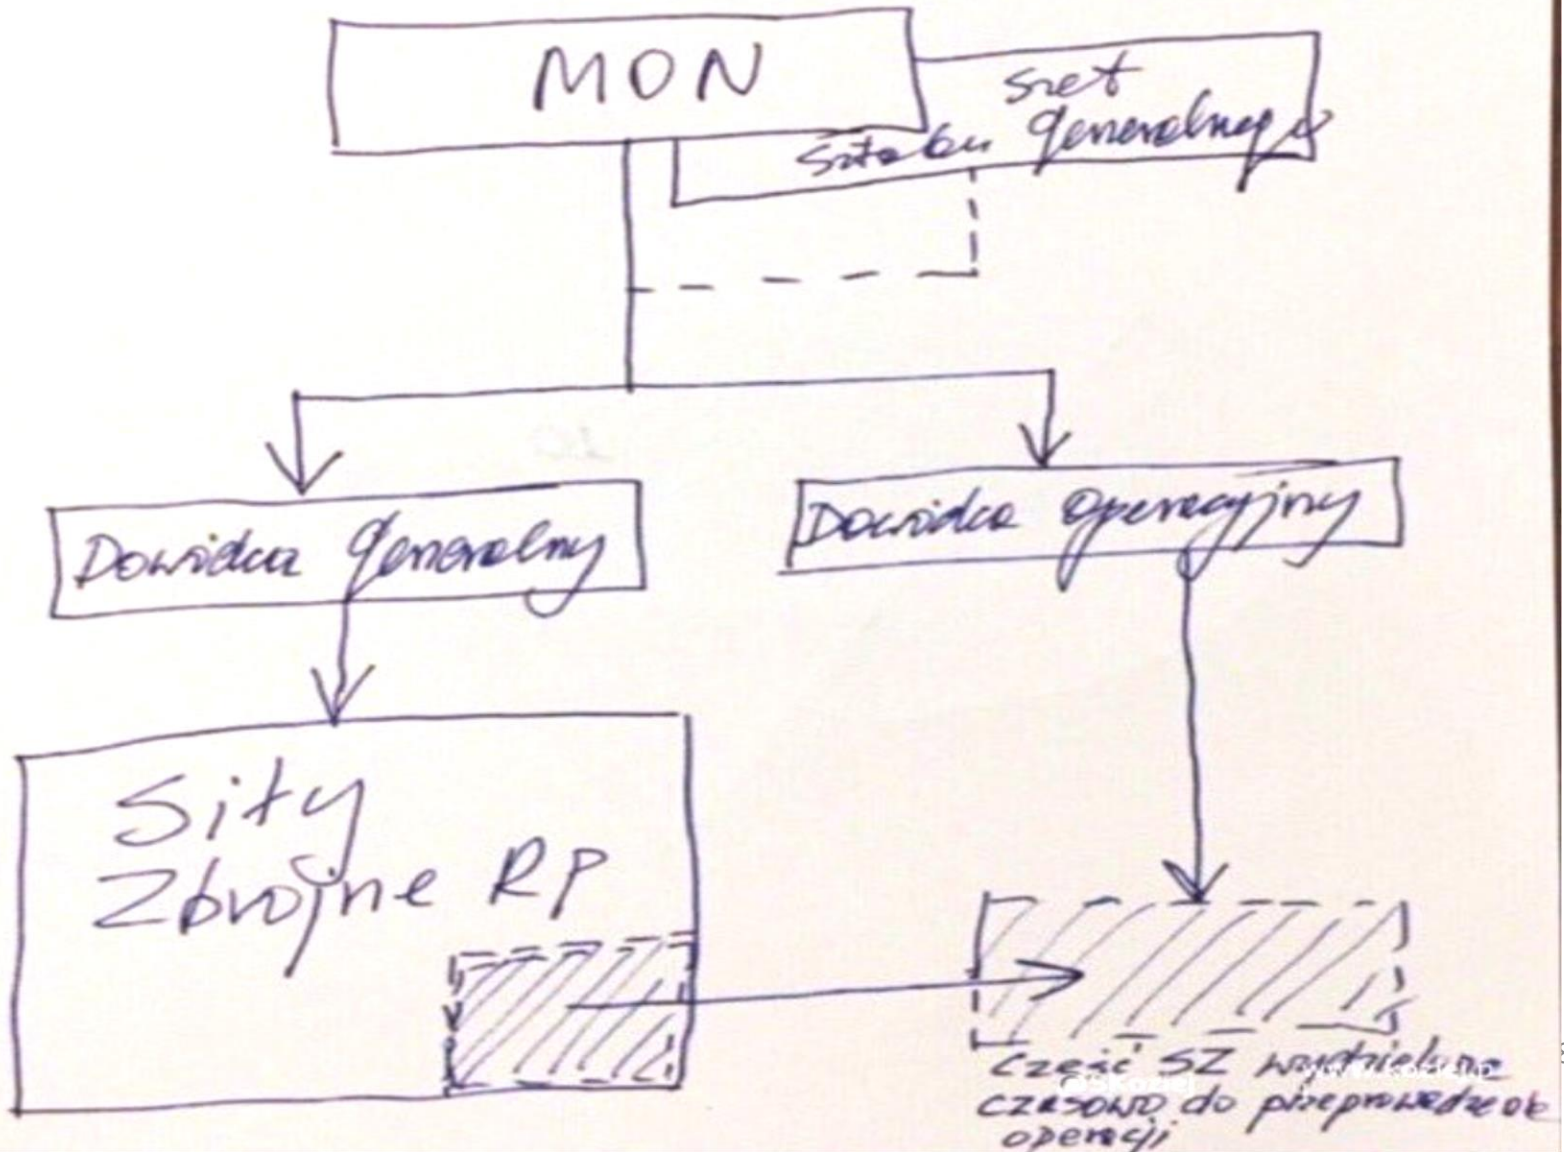 MON
Szef
Sztabu Generalnego
Dowódca Generalny
Dowódca Operacyjny
Siły
Zbrojne RP
część SZ wydzielona
czasowo do przeprowadzenia
operacji
@SKoziel